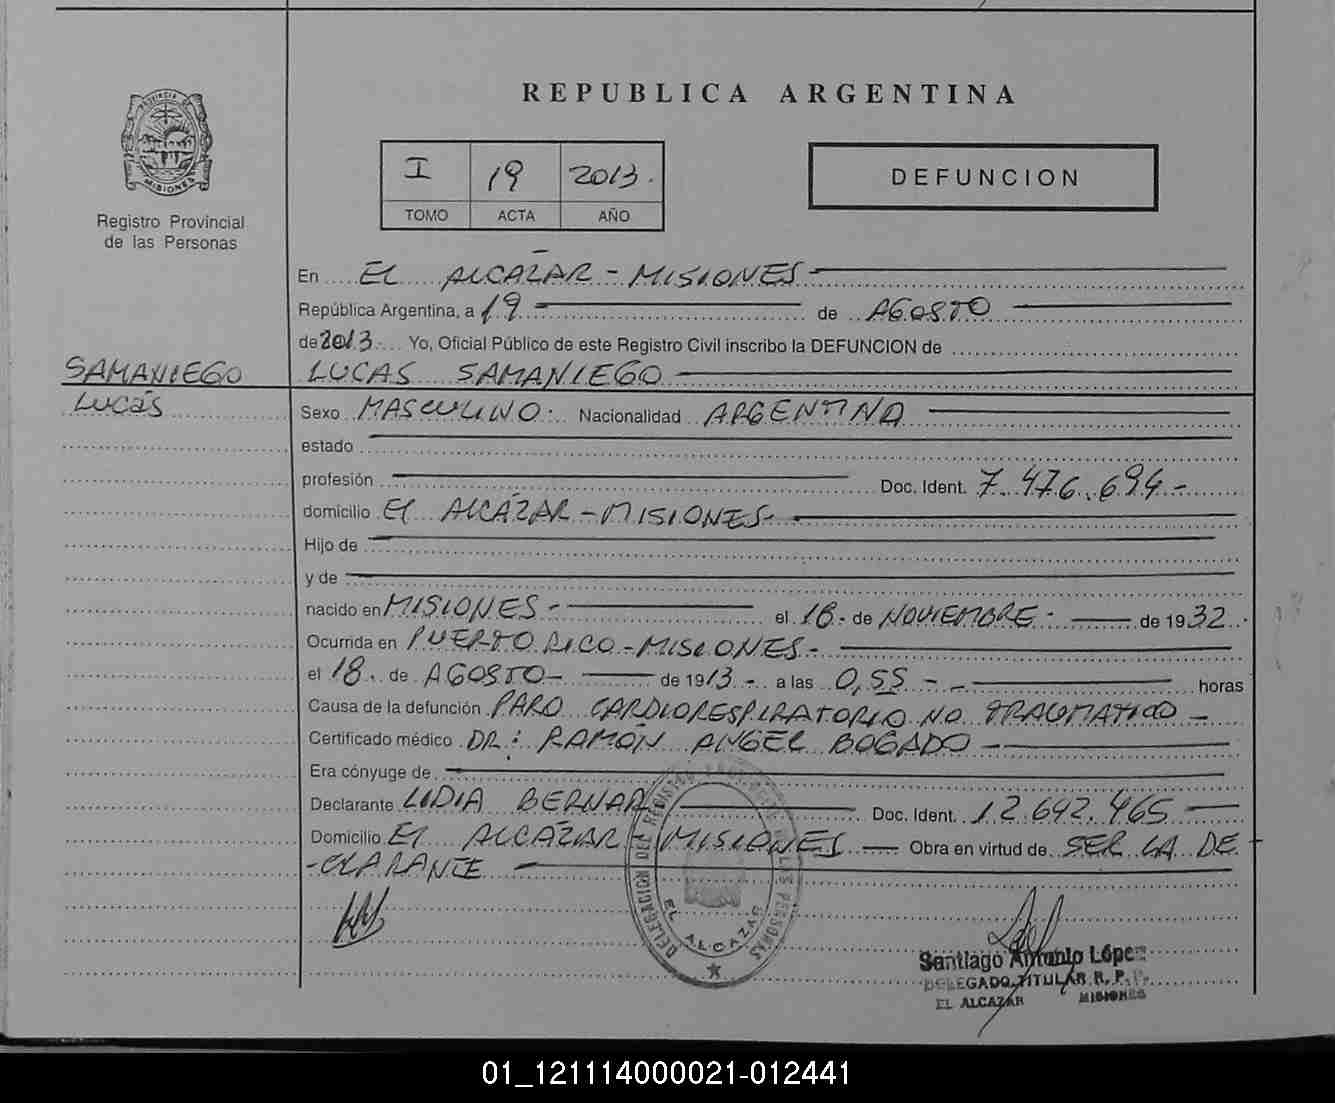 REPUBLICA ARGENTINA
PROVINCIA DE
MISIONES
Registro Provincial
de las Personas
I 19 2013.
TOMO ACTA AÑO
DEFUNCION
En EL ALCAZAR - MISIONES
República Argentina, a 19 de AGOSTO
de 2013 Yo, Oficial Público de este Registro Civil inscribo la DEFUNCION de
SAMANIEGO LUCAS SAMANIEGO
LUCAS Sexo MASCULINO. Nacionalidad ARGENTINA
estado
profesión Doc. Ident. 7.476.694-
domicilio El ALCÁZAR - MISIONES-
Hijo de
y de
nacido en MISIONES - el 18. de NOVIEMBRE - de 1932.
Ocurrida en PUERTO RICO - MISIONES -
el 18. de AGOSTO - de 1913 - a las 0,55 - horas
Causa de la defunción PARO CARDIORESPIRATORIO NO TRAUMATICO -
Certificado médico DR: RAMÓN ANGEL BOGADO -
Era cónyuge de
Declarante LIDIA BERNAR Doc. Ident. 12.642.465
Domicilio El ALCAZAR MISIONES Obra en virtud de SER LA DE-
-CLARANTE
DELEGACION DEL REGISTRO PROVINCIAL DE LAS PERSONAS
EL ALCAZAR
Santiago Antonio López
DELEGADO TITULAR R. P. P.
EL ALCAZAR MISIONES
01_121114000021-012441